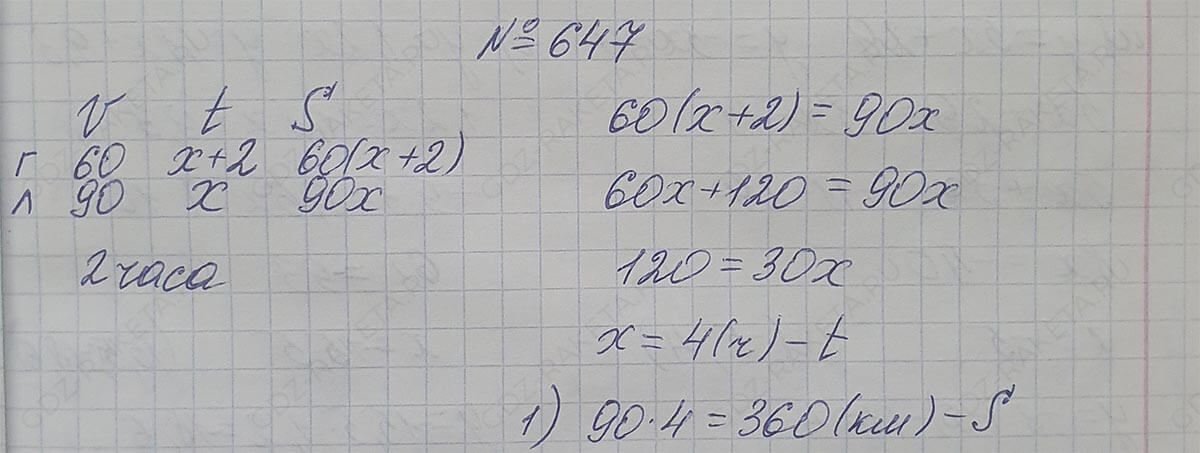 № 647
V t S
г 60 x+2 60(x+2)
л 90 x 90x
2 часа
60(x+2) = 90x
60x+120 = 90x
120 = 30x
x = 4(ч) – t
1) 90·4 = 360(км) – S